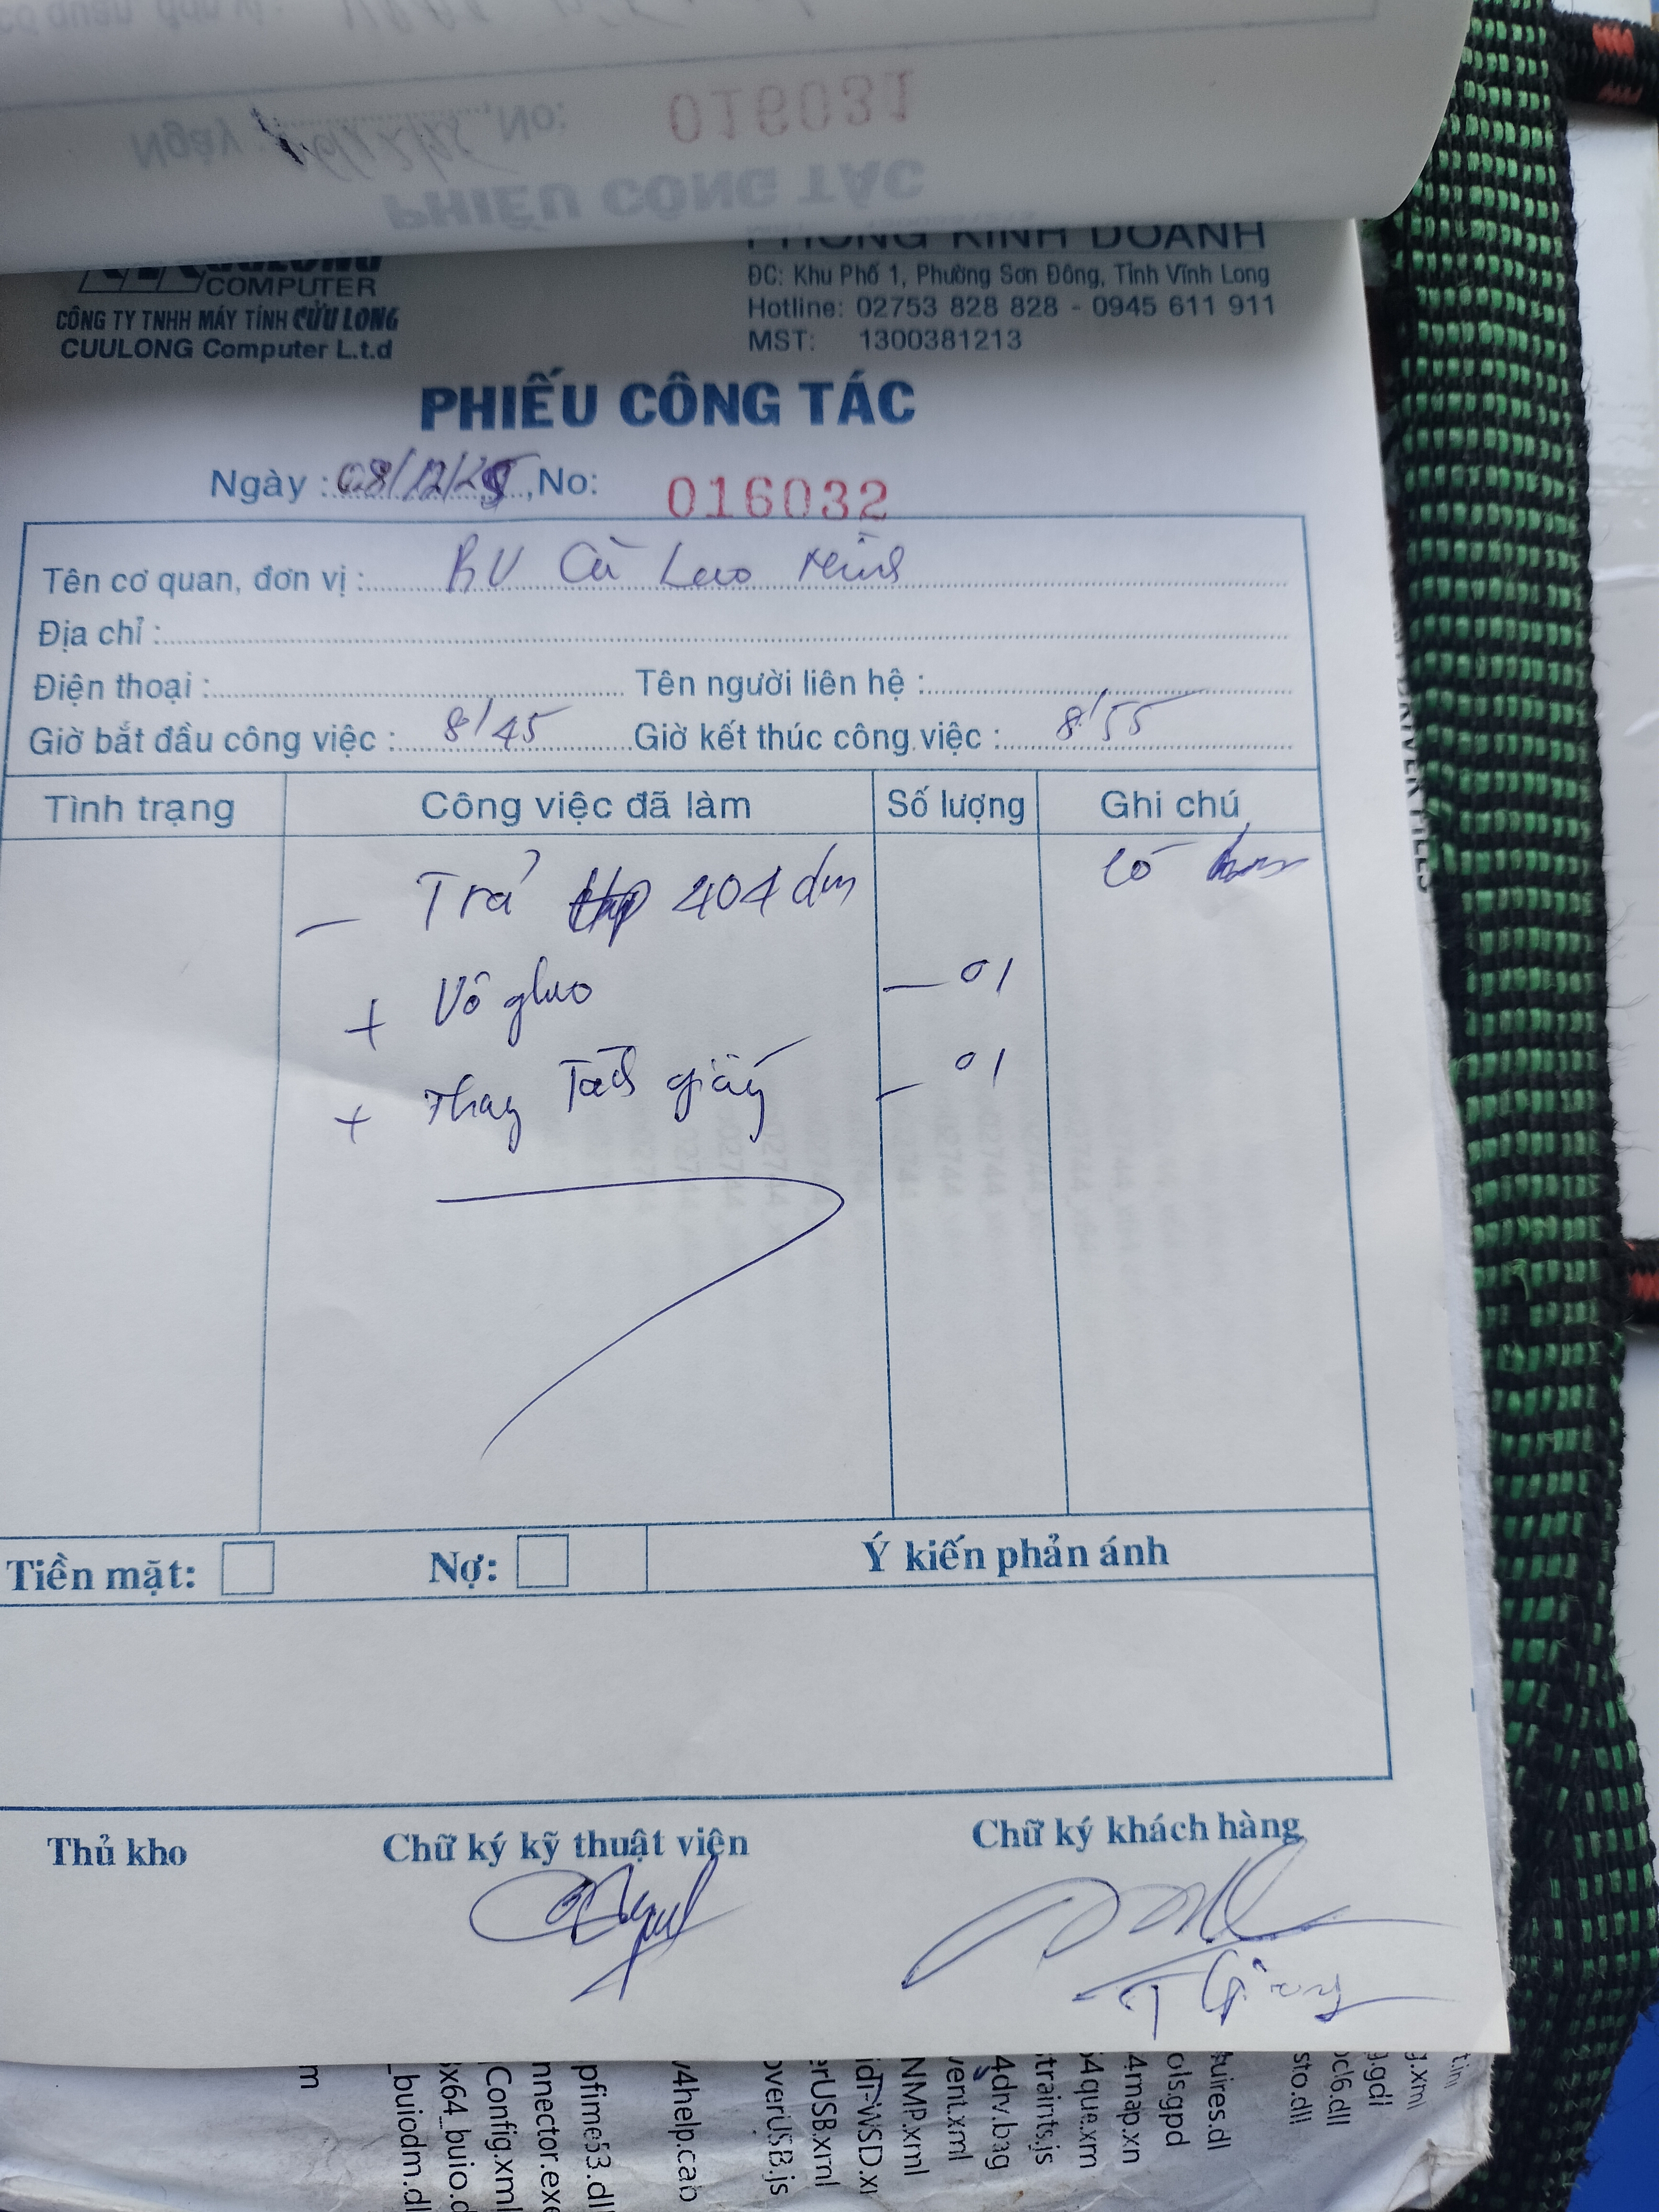 Ngày : No: 016031
PHIẾU CÔNG TÁC
CUULONG
COMPUTER
CÔNG TY TNHH MÁY TÍNH CỬU LONG
CUULONG Computer L.t.d
PHÒNG KINH DOANH
ĐC: Khu Phố 1, Phường Sơn Đông, Tỉnh Vĩnh Long
Hotline: 02753 828 828 - 0945 611 911
MST: 1300381213
PHIẾU CÔNG TÁC
Ngày : 08/12/25, No: 016032
Tên cơ quan, đơn vị : BV Cù Lao Minh
Địa chỉ :
Điện thoại : Tên người liên hệ :
Giờ bắt đầu công việc : 8/45 Giờ kết thúc công việc : 8/55
Tình trạng Công việc đã làm Số lượng Ghi chú
- Trả 404 dn Có
+ Vô - 01
+ Thay Tách giấy - 01
Tiền mặt: Nợ: Ý kiến phản ánh
Thủ kho Chữ ký kỹ thuật viên Chữ ký khách hàng
T Giang
_buiodm.dl
x64_buio.d
Config.xml
nnector.exe
pfime53.dl
v4help.cab
overUSB.js
erUSB.xml
idl-WSD.x
NMP.xml
vent.xml
4drv.bag
traints.js
64que.xm
4map.xn
ols.gpd
quires.dl
sto.dll
cl6.dll
g.gdl
g.xml